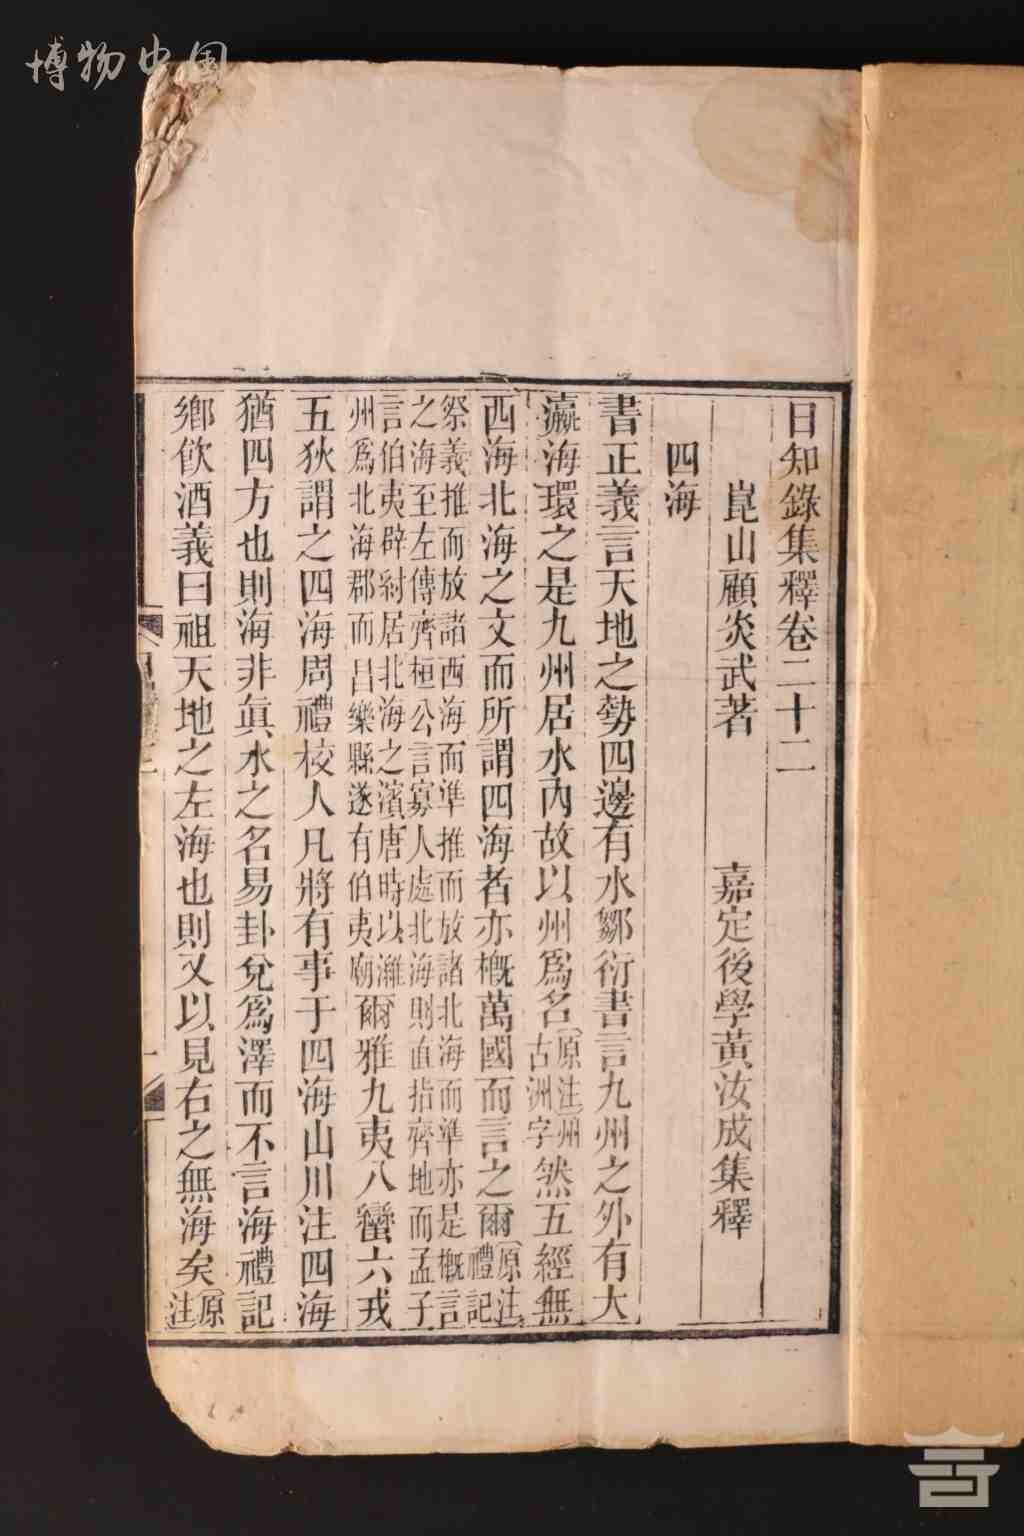 博物中国
日知錄集釋卷二十二
崑山顧炎武著　嘉定後學黃汝成集釋
四海
書正義言天地之勢四邊有水鄒衍書言九州之外有大
瀛海環之是九州居水內故以州爲名(原注)州古洲字然五經無
西海北海之文而所謂四海者亦槪萬國而言之爾(原注)禮記
祭義推而放諸西海而準推而放諸北海而準亦是槪言
之海至左傳齊桓公言寡人處北海則直指齊地而孟子
言伯夷辟紂居北海之濱唐時以濰
州爲北海郡而昌樂縣遂有伯夷廟爾雅九夷八蠻六戎
五狄謂之四海周禮校人凡將有事于四海山川注四海
猶四方也則海非眞水之名易卦兌爲澤而不言海禮記
鄉飮酒義曰祖天地之左海也則又以見右之無海矣(原注